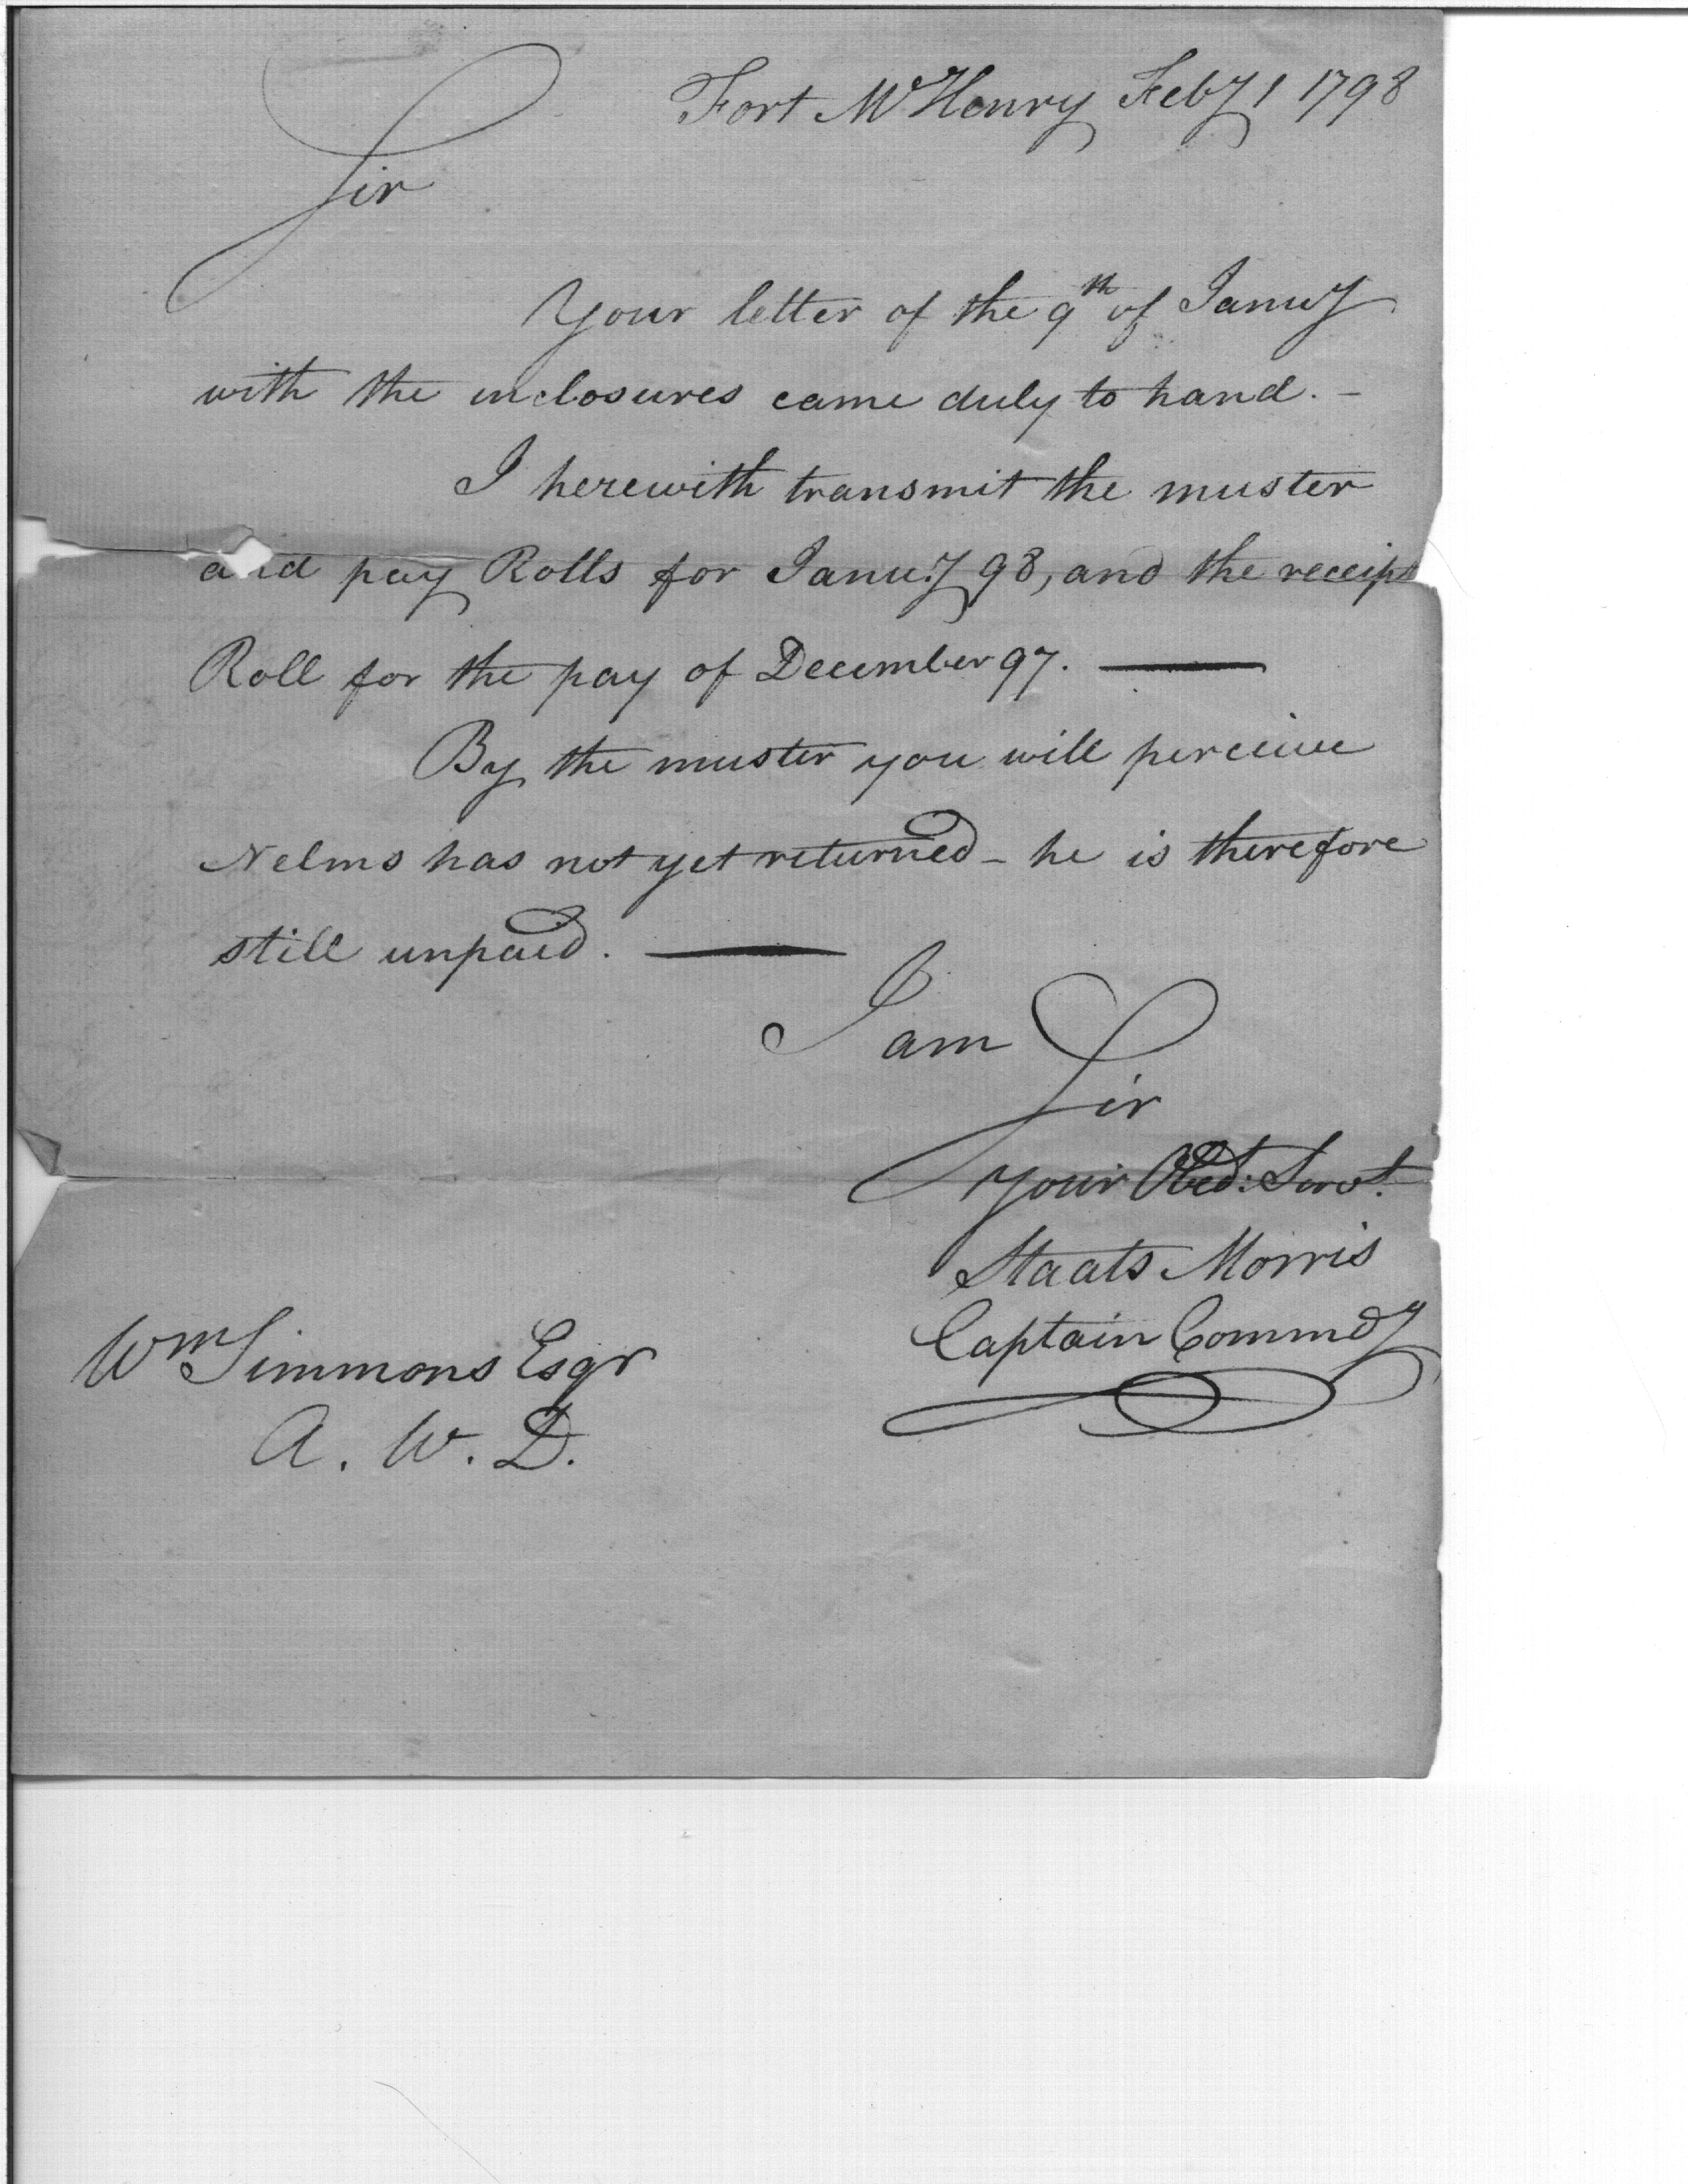 Fort McHenry Feby 1 1798
Sir
Your letter of the 9th of Janu'y
with the inclosures came duly to hand. -
I herewith transmit the muster
and pay Rolls for Janu'y 98, and the receipt
Roll for the pay of December 97. —
By the muster you will perceive
Nelms has not yet returned - he is therefore
still unpaid. —
I am
Sir
your Obed: Servt.
Staats Morris
Captain Commdg
Wm Simmons Esqr
A. W. D.